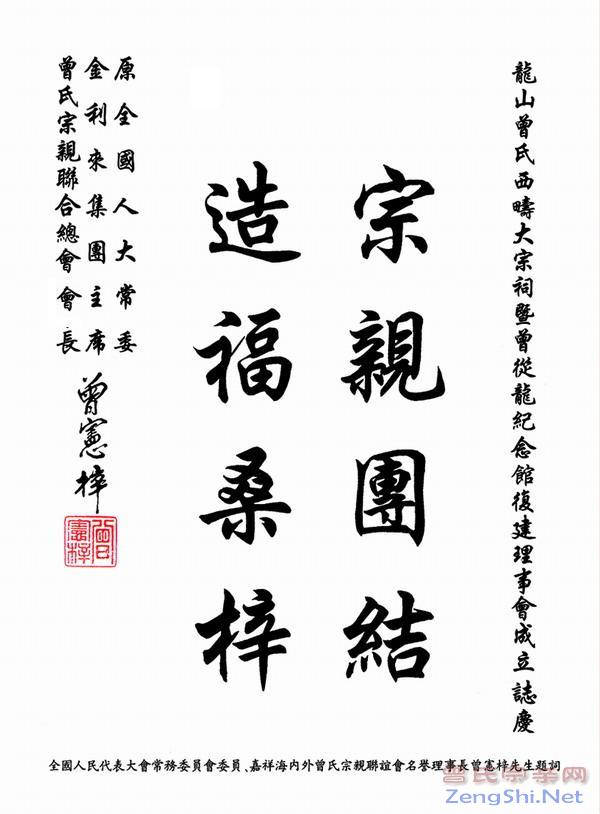 龍山曾氏西疇大宗祠暨曾從龍紀念館復建理事會成立誌慶
宗親團結
造福桑梓
原全國人大常委
金利來集團主席
曾氏宗親聯合總會會長
曾憲梓
曾憲梓
全國人民代表大會常務委員會委員、嘉祥海內外曾氏宗親聯誼會名譽理事長曾憲梓先生題詞
曾氏宗亲网
ZengShi.Net